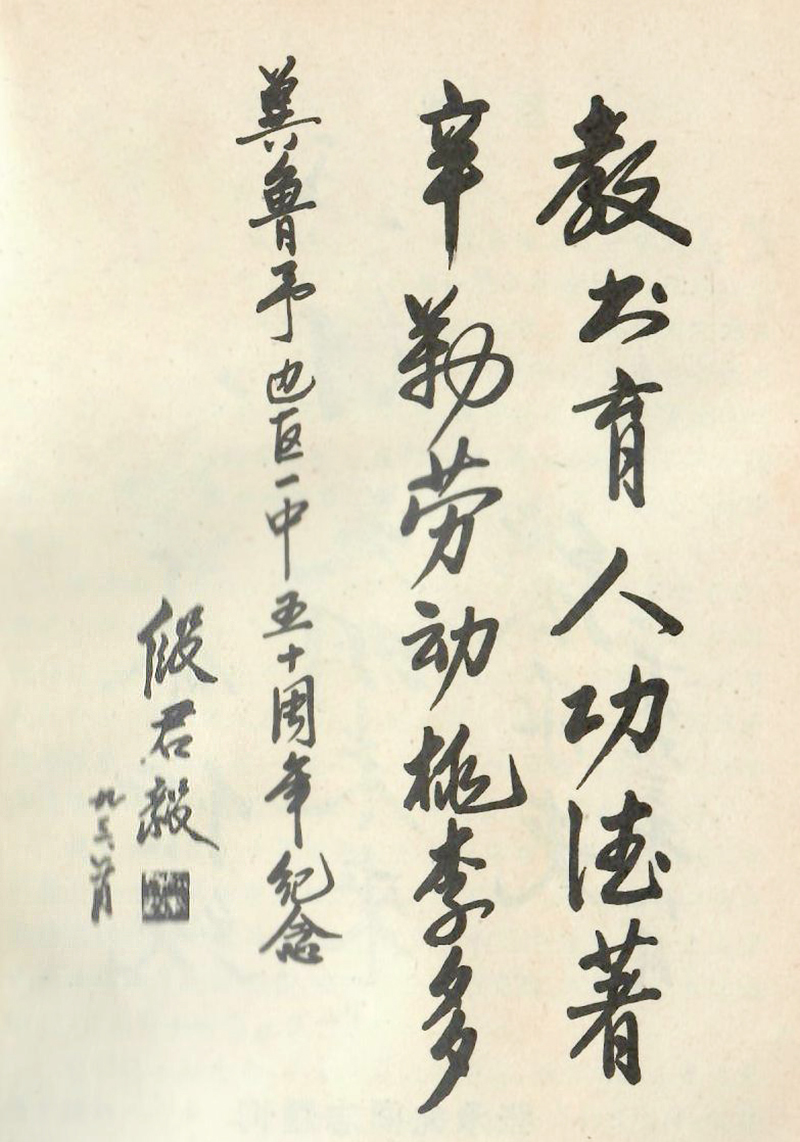 教书育人功德著
辛勤劳动桃李多
冀鲁予边区一中五十周年纪念
段君毅
九三、六月